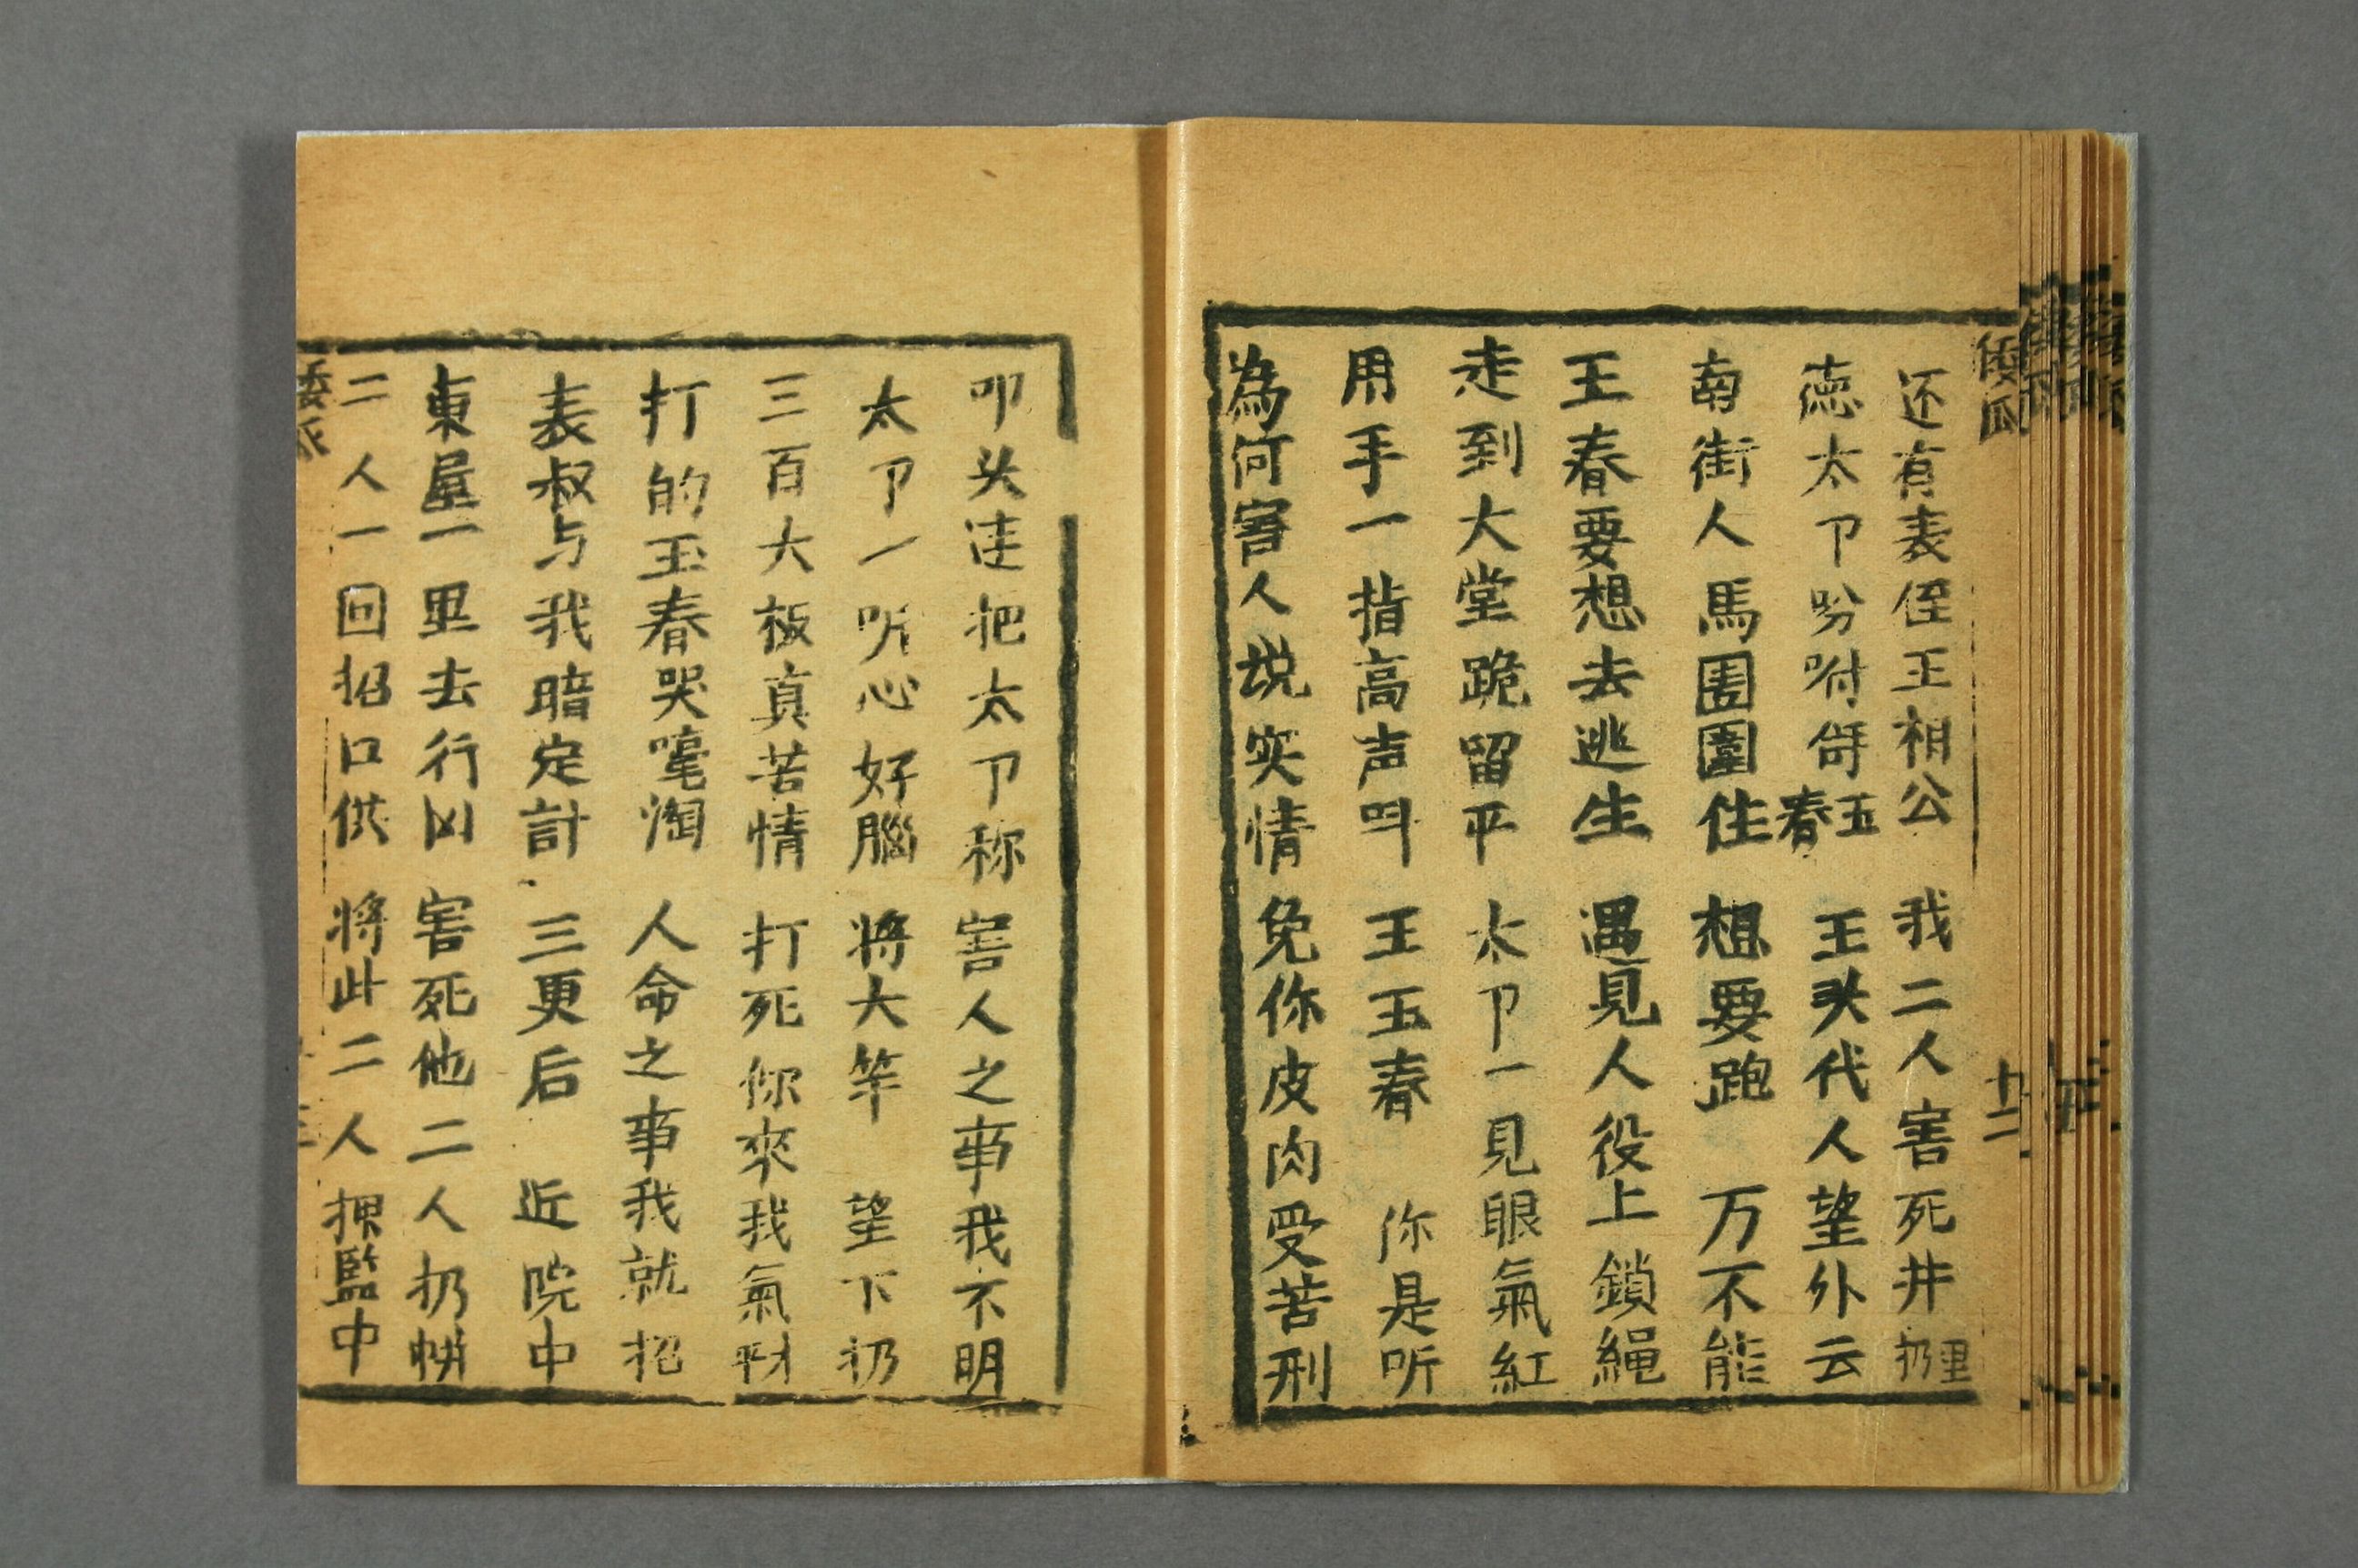 还有表侄王相公 我二人害死井扔里
徳太卩吩咐 玉春 王头代人望外云
南街人馬囲圍住 想要跑 万不能
王春要想去逃生 遇見人役上鎖绳
走到大堂跪留平 太卩一見眼氣紅
用手一指高声叫 王玉春 你是听
為何害人说实情 免你皮肉受苦刑
十二
叩头连把太卩称 害人之事我不明
太卩一听心好腦 将大竿 望下扔
三百大板真苦情 打死你來我氣平
打的玉春哭嚎淘 人命之事我就招
表叔与我暗定計 三更后 近院中
東屋一里去行凶 害死他二人扔井
二人一回招口供 将此二人押監中